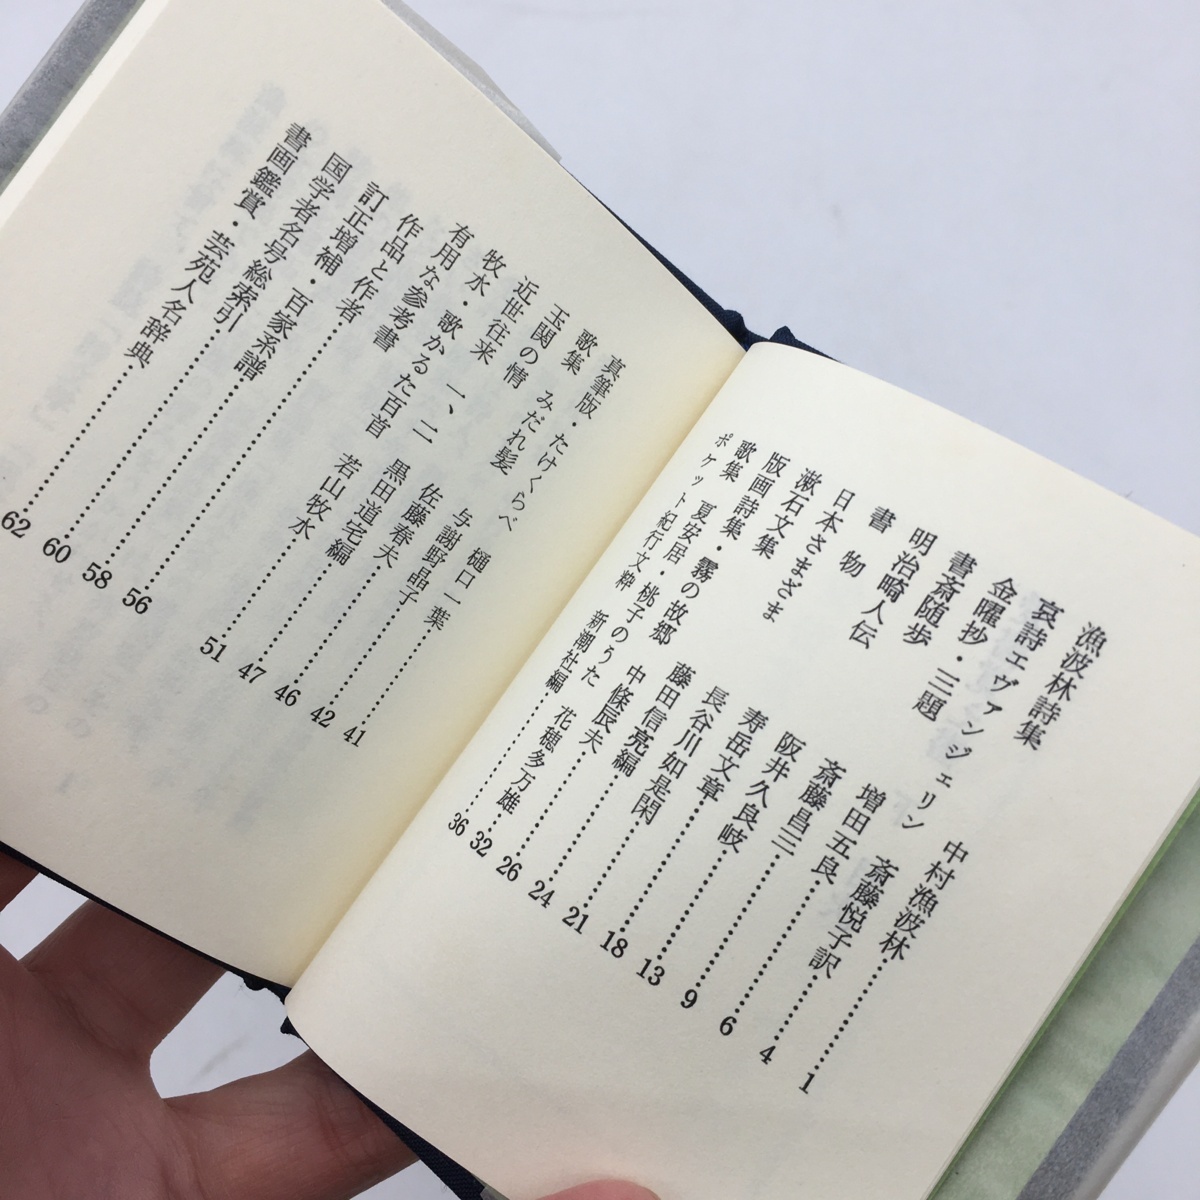 漁波林詩集 中村漁波林……1
哀詩エヴァンジェリン 斎藤悦子訳……4
金曜抄・三題 増田五良……6
書斎随歩 斎藤昌三……9
明治畸人伝 阪井久良岐……13
書物 寿岳文章……18
日本さまざま 長谷川如是閑……21
漱石文集 藤田信亮編……24
版画詩集・霧の故郷 中條辰夫……26
歌集 夏安居・桃子のうた 花穂多万雄……32
ポケット紀行文粋 新潮社編……36
真筆版・たけくらべ 樋口一葉……41
歌集 みだれ髪 与謝野晶子……42
玉関の情 佐藤春夫……46
近世往来 一、二 黒田道宅編……47
牧水・歌かるた百首 若山牧水……51
有用な参考書
作品と作者……56
訂正増補・百家系譜……58
国学者名号総索引……60
書画鑑賞・芸苑人名辞典……62